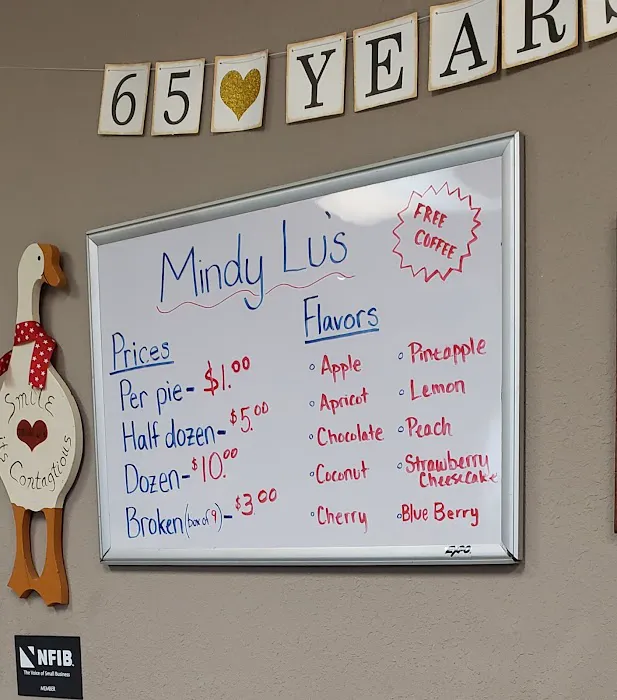 65 YEARS
Mindy Lu's
FREE
COFFEE
Prices
Per pie- $1.00
Half dozen- $5.00
Dozen- $10.00
Broken (box of 9) - $3.00
Flavors
Apple
Apricot
Chocolate
Coconut
Cherry
Pineapple
Lemon
Peach
Strawberry
Cheesecake
Blue Berry
EXPO
SMILE
It's Contagious
NFIB
The Voice of Small Business
MEMBER